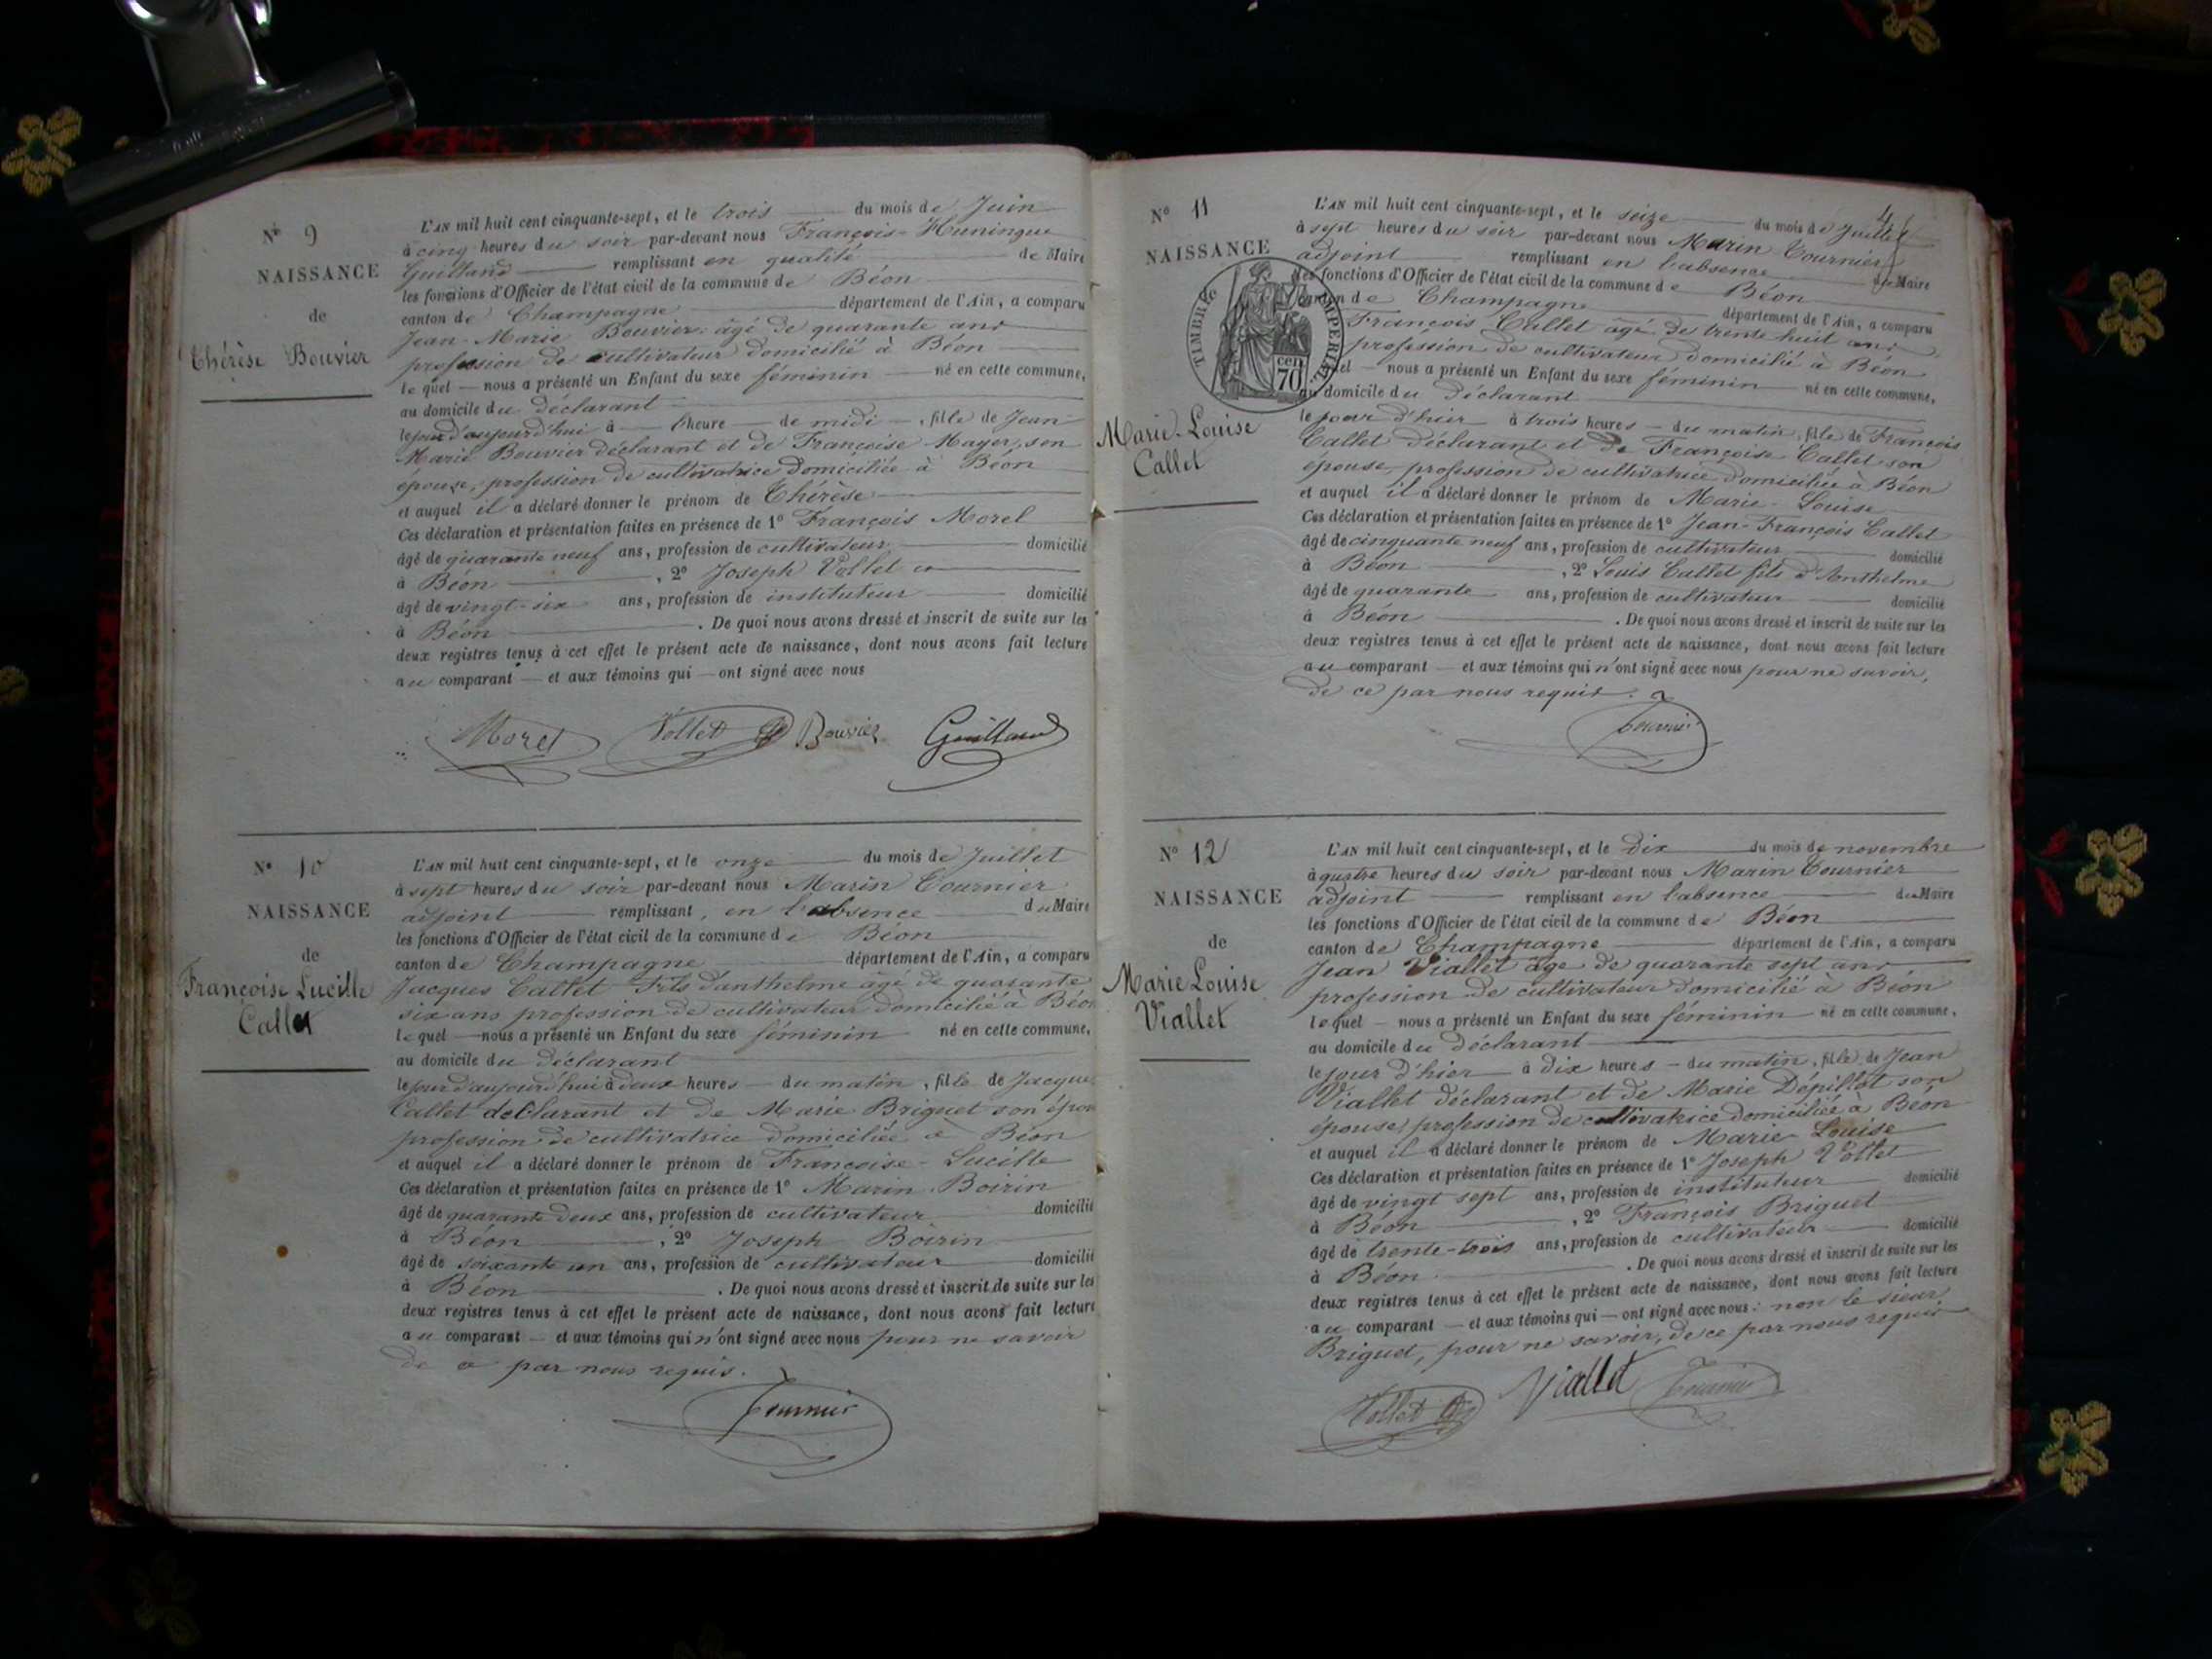 N° 9
NAISSANCE
de
Thérèse Bouvier
L'AN mil huit cent cinquante-sept, et le trois du mois de Juin
à cinq heures du soir par-devant nous François-Huningue
Guilland remplissant en qualité de Maire
les fonctions d'Officier de l'état civil de la commune de Béon
canton de Champagne département de l'Ain, a comparu
Jean-Marie Bouvier âgé de quarante ans
profession de cultivateur domicilié à Béon
lequel nous a présenté un Enfant du sexe féminin né en cette commune,
au domicile du déclarant
le jour d'aujourd'hui à heure de midi, fille de Jean
Marie Bouvier déclarant et de Françoise Mayer, son
épouse, profession de cultivatrice domiciliée à Béon
et auquel il a déclaré donner le prénom de Thérèse
Ces déclaration et présentation faites en présence de 1° François Morel
âgé de quarante neuf ans, profession de cultivateur domicilié
à Béon, 2° Joseph Vollet
âgé de vingt-six ans, profession de instituteur domicilié
à Béon. De quoi nous avons dressé et inscrit de suite sur les
deux registres tenus à cet effet le présent acte de naissance, dont nous avons fait lecture
au comparant et aux témoins qui ont signé avec nous
Morel Vollet Bouvier Guilland
N° 10
NAISSANCE
de
Françoise Lucille
Callet
L'AN mil huit cent cinquante-sept, et le onze du mois de Juillet
à sept heures du soir par-devant nous Marin Tournier
adjoint remplissant, en l'absence du Maire
les fonctions d'Officier de l'état civil de la commune de Béon
canton de Champagne département de l'Ain, a comparu
Jacques Callet Fils d'anthelme âgé de quarante
six ans profession de cultivateur domicilié à Béon
lequel nous a présenté un Enfant du sexe féminin né en cette commune,
au domicile du déclarant
le jour d'aujourd'hui à deux heures du matin, fille de Jacques
Callet declarant et de Marie Briguet son épouse
profession de cultivatrice domiciliée à Béon
et auquel il a déclaré donner le prénom de Francoise-Lucille
Ces déclaration et présentation faites en présence de 1° Marin Boirin
âgé de quarante deux ans, profession de cultivateur domicilié
à Béon, 2° Joseph Boirin
âgé de soixante un ans, profession de cultivateur domicilié
à Béon. De quoi nous avons dressé et inscrit de suite sur les
deux registres tenus à cet effet le présent acte de naissance, dont nous avons fait lecture
au comparant et aux témoins qui n'ont signé avec nous pour ne savoir
de ce par nous requis.
Tournier
N° 11
NAISSANCE
TIMBRE IMPERIAL
cen
70
Marie-Louise
Callet
4
L'AN mil huit cent cinquante-sept, et le seize du mois de Juillet
à sept heures du soir par-devant nous Marin Tournier
adjoint remplissant en l'absence du Maire
les fonctions d'Officier de l'état civil de la commune de Béon
canton de Champagne département de l'Ain, a comparu
François Callet âgé de trente huit ans
profession de cultivateur domicilié à Béon
lequel nous a présenté un Enfant du sexe féminin né en cette commune,
au domicile du Déclarant
le jour d'hier à trois heures du matin, fille de François
Callet déclarant et de Françoise Callet son
épouse, profession de cultivatrice domiciliée à Béon
et auquel il a déclaré donner le prénom de Marie-Louise
Ces déclaration et présentation faites en présence de 1° Jean-François Callet
âgé de cinquante neuf ans, profession de cultivateur domicilié
à Béon, 2° Louis Callet fils d'Anthelme
âgé de quarante ans, profession de cultivateur domicilié
à Béon. De quoi nous avons dressé et inscrit de suite sur les
deux registres tenus à cet effet le présent acte de naissance, dont nous avons fait lecture
au comparant et aux témoins qui n'ont signé avec nous pour ne savoir,
de ce par nous requis.
Tournier
N° 12
NAISSANCE
de
Marie Louise
Viallet
L'AN mil huit cent cinquante-sept, et le Dix du mois de novembre
à quatre heures du soir par-devant nous Marin Tournier
adjoint remplissant en l'absence du Maire
les fonctions d'Officier de l'état civil de la commune de Béon
canton de Champagne département de l'Ain, a comparu
Jean Viallet âge de quarante sept ans
profession de cultivateur domicilié à Béon
lequel nous a présenté un Enfant du sexe féminin né en cette commune,
au domicile du déclarant
le jour d'hier à dix heures du matin, fille de Jean
Viallet déclarant et de Marie Dépillot son
épouse, profession de cultivatrice domiciliée à Béon
et auquel il a déclaré donner le prénom de Marie Louise
Ces déclaration et présentation faites en présence de 1° Joseph Vollet
âgé de vingt sept ans, profession de instituteur domicilié
à Béon, 2° François Briguet
âgé de trente-trois ans, profession de cultivateur domicilié
à Béon. De quoi nous avons dressé et inscrit de suite sur les
deux registres tenus à cet effet le présent acte de naissance, dont nous avons fait lecture
au comparant et aux témoins qui ont signé avec nous: non le sieur
Briguet, pour ne savoir, de ce par nous requis
Vollet Viallet Tournier